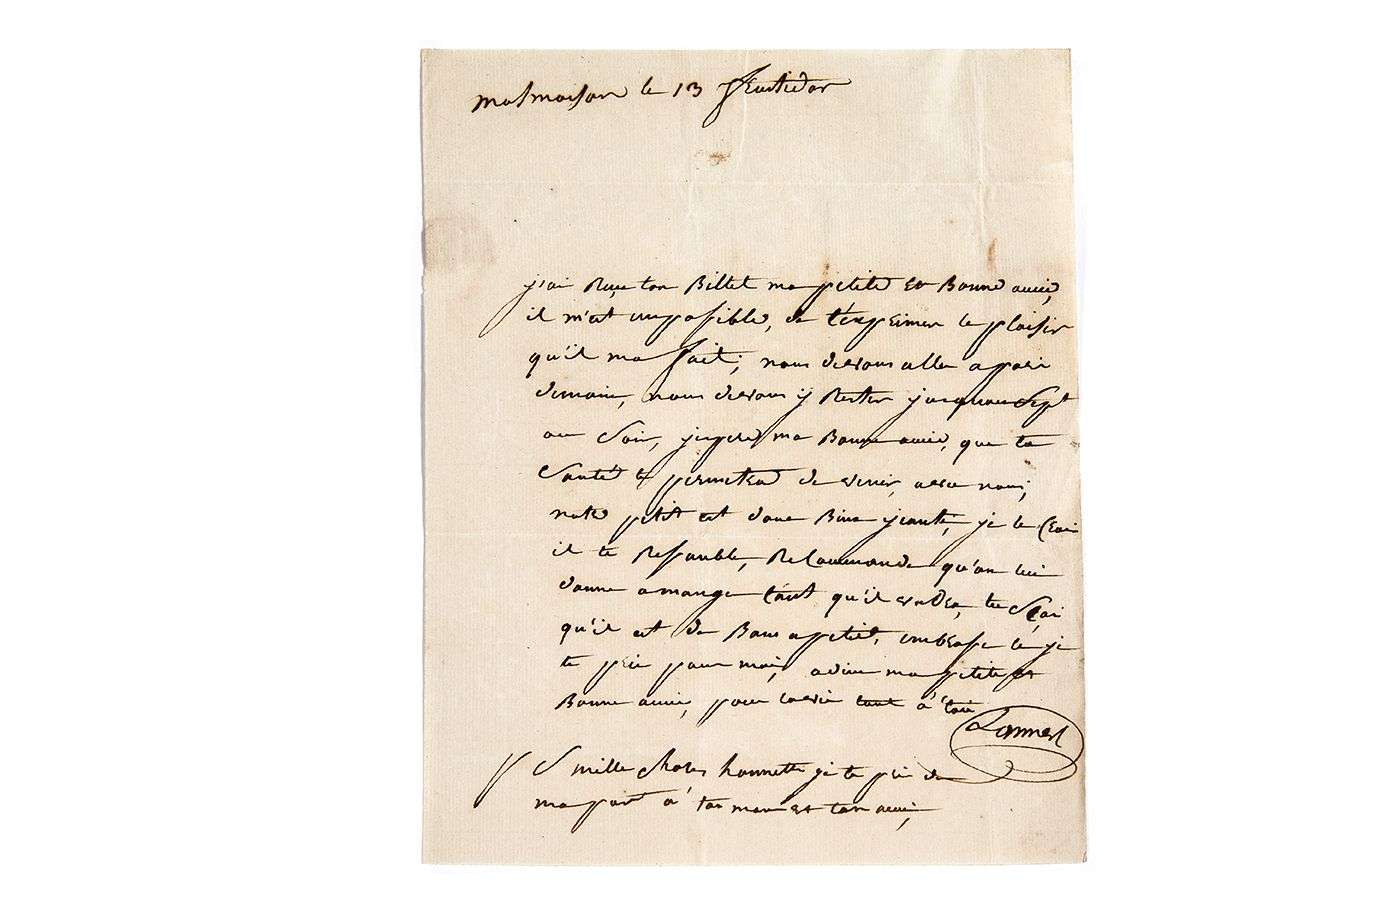 malmaison le 13 fructidor
j'ai Reçu ton Billet ma petite et Bonne amie,
il m'est impossible, de t'exprimer le plaisir
qu'il ma fait; nous devons aller a pari
demain, nous devons y Rester jusquau Sept
au Soir, jespere ma Bonne amie, que ta
Santé te permetra de venir, avec nous,
notre petit est donc Bien jeanti, je le Croi
il te Ressamble, Recommande qu'on lui
donne a mange tant qu'il voudra, tu Scai
qu'il est de Bons apetit, embrasse le je
te prie pour moi, adieu ma petite et
Bonne amie, pour la vie tout à toi
Lannes
P S mille choses honnette je te prie de
ma part à ta maman et ton ami,